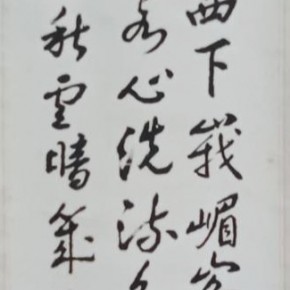 西下峩嵋
客心洗流
秋雲暗幾